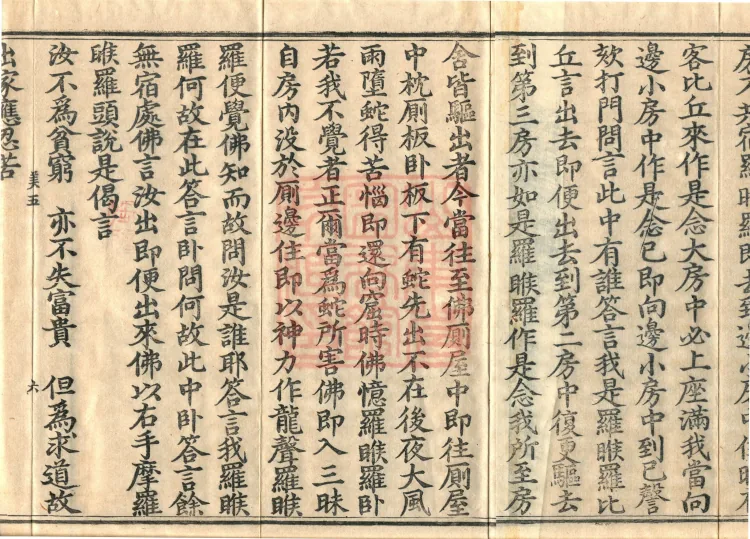 客比丘來作是念大房中必上座滿我當向
邊小房中作是念已即向邊小房中到已謦
欬打門問言此中有誰答言我是羅睺羅比
丘言出去即便出去到第二房中復更驅去
到第三房亦如是羅睺羅作是念我所至房
舍皆驅出者今當往至佛厠屋中即往厠屋
中枕厠板卧板下有蛇先出不在後夜大風
雨墮蛇得苦惱即還向窟時佛憶羅睺羅卧
若我不覺者正爾當爲蛇所害佛即入三昧
自房內没於厠邊住即以神力作龍聲羅睺
羅便覺佛知而故問汝是誰耶答言我羅睺
羅何故在此答言卧問何故此中卧答言餘
無宿處佛言汝出即便出來佛以右手摩羅
睺羅頭說是偈言
汝不爲貧窮　亦不失富貴　但爲求道故
美五
六
出家應忍苦